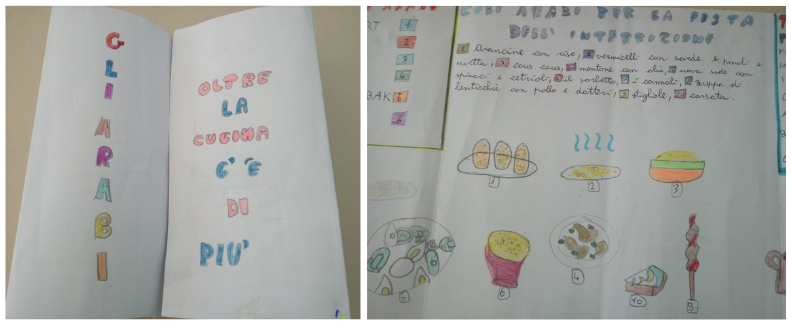 GLI ARABI
OLTRE
LA
CUCINA
C'È
DI
PIU'
RT 1
2
3
4
BAK 5
6
CIBI ARABI PER LA FESTA
DELL' INTERIZIONE
1 Arancine con riso, 2 vermicelli con sarde e pinoli e
uvetta, 3 cous cous, 4 montone con olio, 5 uova sode con
spinaci e cetrioli, 6 il sorbetto, 7 i cannoli, 8 zuppa di
lenticchie con pollo e datteri, 9 stigliole, 10 cassata.
1
2
3
5
6
4
10
9